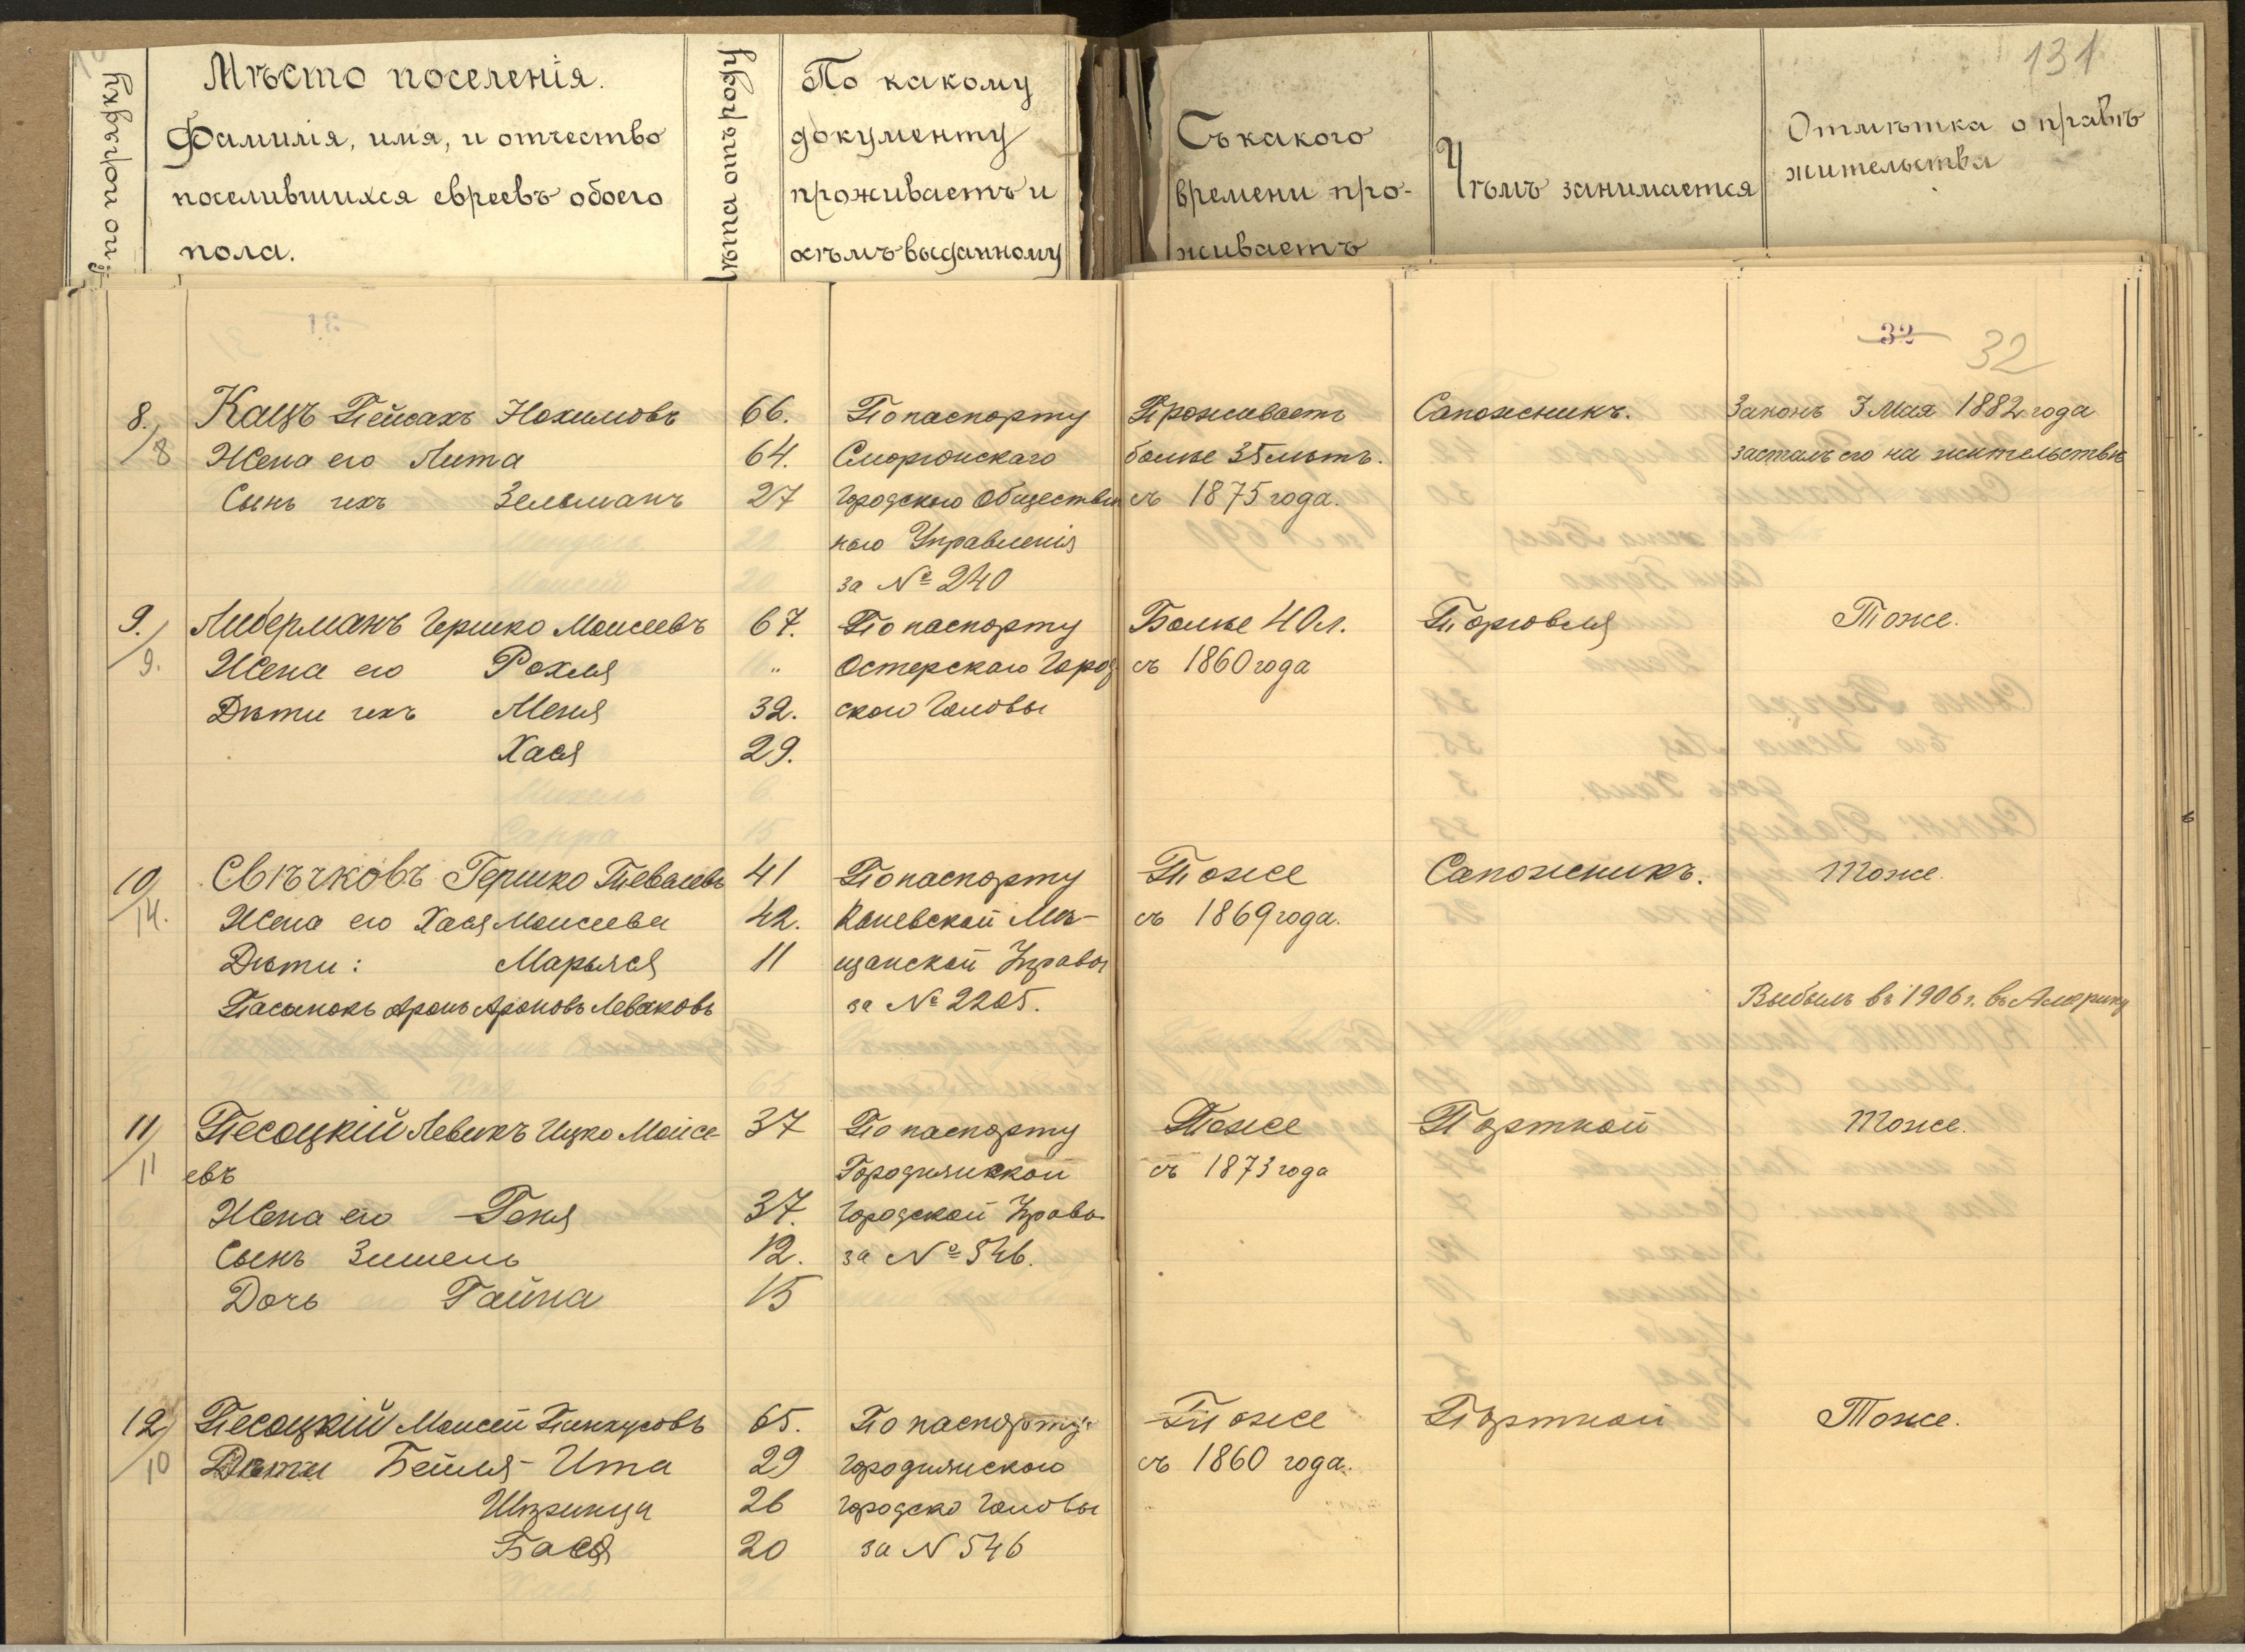 131
по порядку
Мѣсто поселенія.
Фамилія, имя, и отчество
поселившихся евреевъ обоего
пола.
Лѣта отъ роду
По какому
документу
проживаетъ и
кѣмъ выданному
Съ какого
времени про-
живаетъ
Чѣмъ занимается
Отмѣтка о правѣ
жительства
32 32
8./8
Кацъ Пейсахъ Нохимовъ 66.
Жена его Лита 64.
Сынъ ихъ Зельманъ 27
По паспорту
Сморгонскаго
Городского Обществен
наго Управленія
за № 240
Проживаетъ
болѣе 35 лѣтъ.
съ 1875 года.
Сапожникъ.
Законъ 3 Мая 1882 года
засталъ его на жительствѣ
9./9.
Либерманъ Гершко Моисеевъ 67.
Жена его Рохля "
Дѣти ихъ Меня 32.
Хася 29.
По паспорту
Остерскаго Город
ского Головы
Болѣе 40 л.
съ 1860 года
Торговля
Тоже.
10/14.
Свѣчковъ Гершко Тевелевъ 41
Жена его Хася Моисеева 42.
Дѣти: Марьяся 11
Пасынокъ Аронъ Ароновъ Леваковъ
По паспорту
Каневской Мѣ-
щанской Управы
за № 2205.
Тоже
съ 1869 года.
Сапожникъ.
Тоже.
Выбылъ въ 1906 г. въ Америку
11/11
Песоцкій Левикъ Ицко Моисе-
евъ 37
Жена его Геня 37.
Сынъ Зишель 12.
Дочь Гайна 15
По паспорту
Городнянской
Городской Управы
за № 546.
Тоже
съ 1873 года
Портной
Тоже.
12/10
Песоцкій Моисей Пинхусовъ 65.
Дѣти Бейля-Ита 29
Шпринца 26
Бася 20
По паспорту
Городнянского
Городско Головы
за N 546
Тоже
съ 1860 года.
Портной
Тоже.